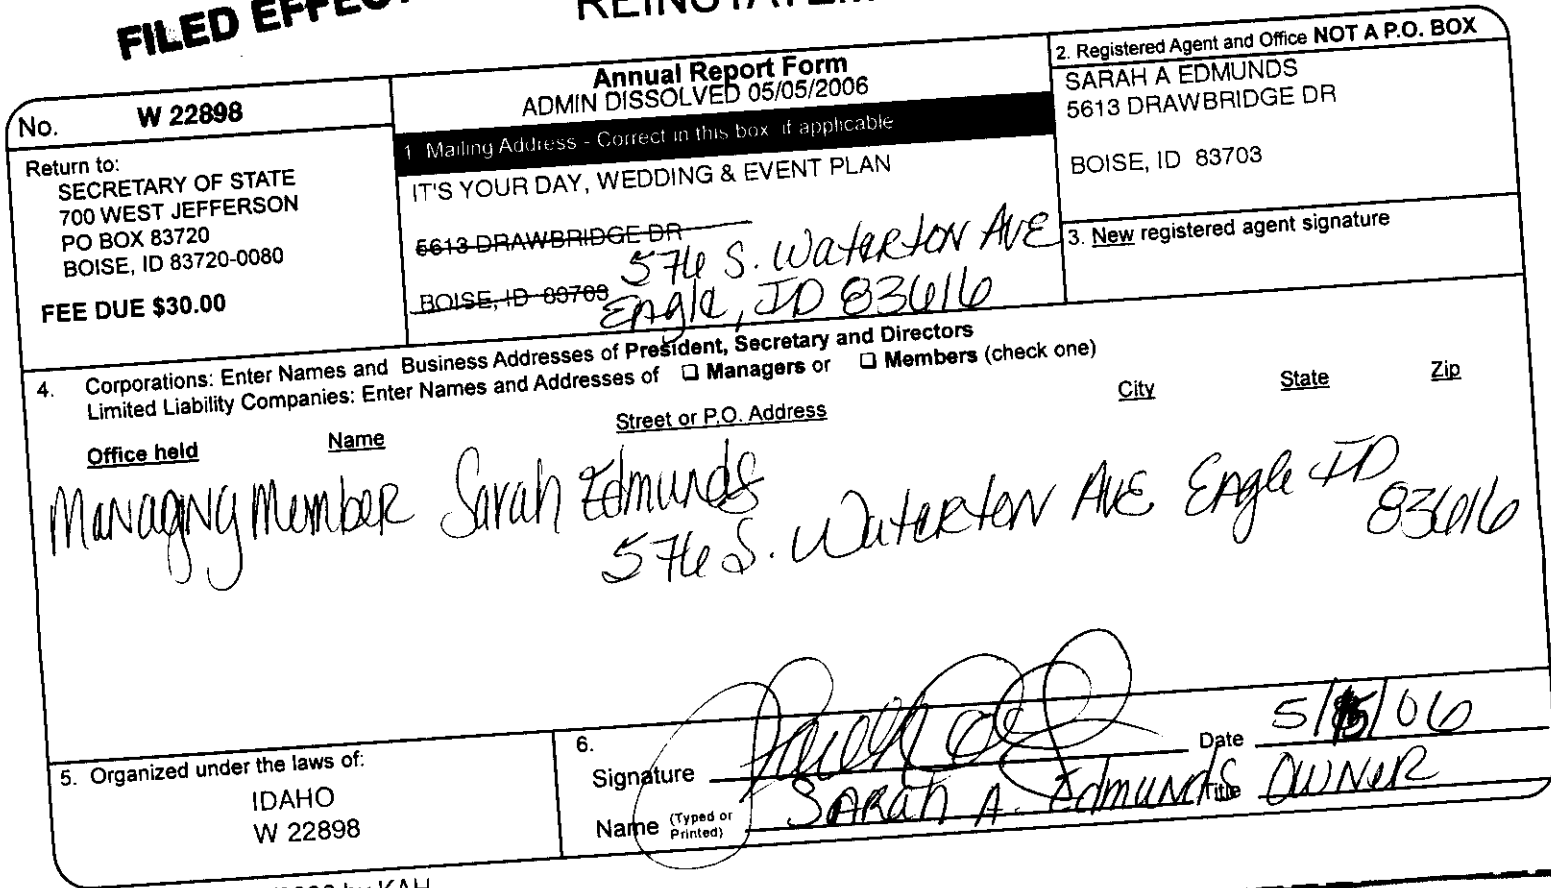 FILED EFFECT
REINSTATEM
No. W 22898
Return to:
SECRETARY OF STATE
700 WEST JEFFERSON
PO BOX 83720
BOISE, ID 83720-0080
FEE DUE $30.00
Annual Report Form
ADMIN DISSOLVED 05/05/2006
1 Mailing Address - Correct in this box if applicable
IT'S YOUR DAY, WEDDING & EVENT PLAN
5613 DRAWBRIDGE DR
576 S. Waterton Ave
BOISE, ID 83703
Eagle, ID 83616
2. Registered Agent and Office NOT A P.O. BOX
SARAH A EDMUNDS
5613 DRAWBRIDGE DR
BOISE, ID 83703
3. New registered agent signature
4. Corporations: Enter Names and Business Addresses of President, Secretary and Directors
Limited Liability Companies: Enter Names and Addresses of ❑ Managers or ❑ Members (check one)
Office held Name Street or P.O. Address City State Zip
Managing Member Sarah Edmunds
576 S. Waterton Ave Eagle ID
83616
5. Organized under the laws of:
IDAHO
W 22898
6.
Signature Date 5/ /06
Name (Typed or Printed) Sarah A. Edmunds Title Owner
by KAH